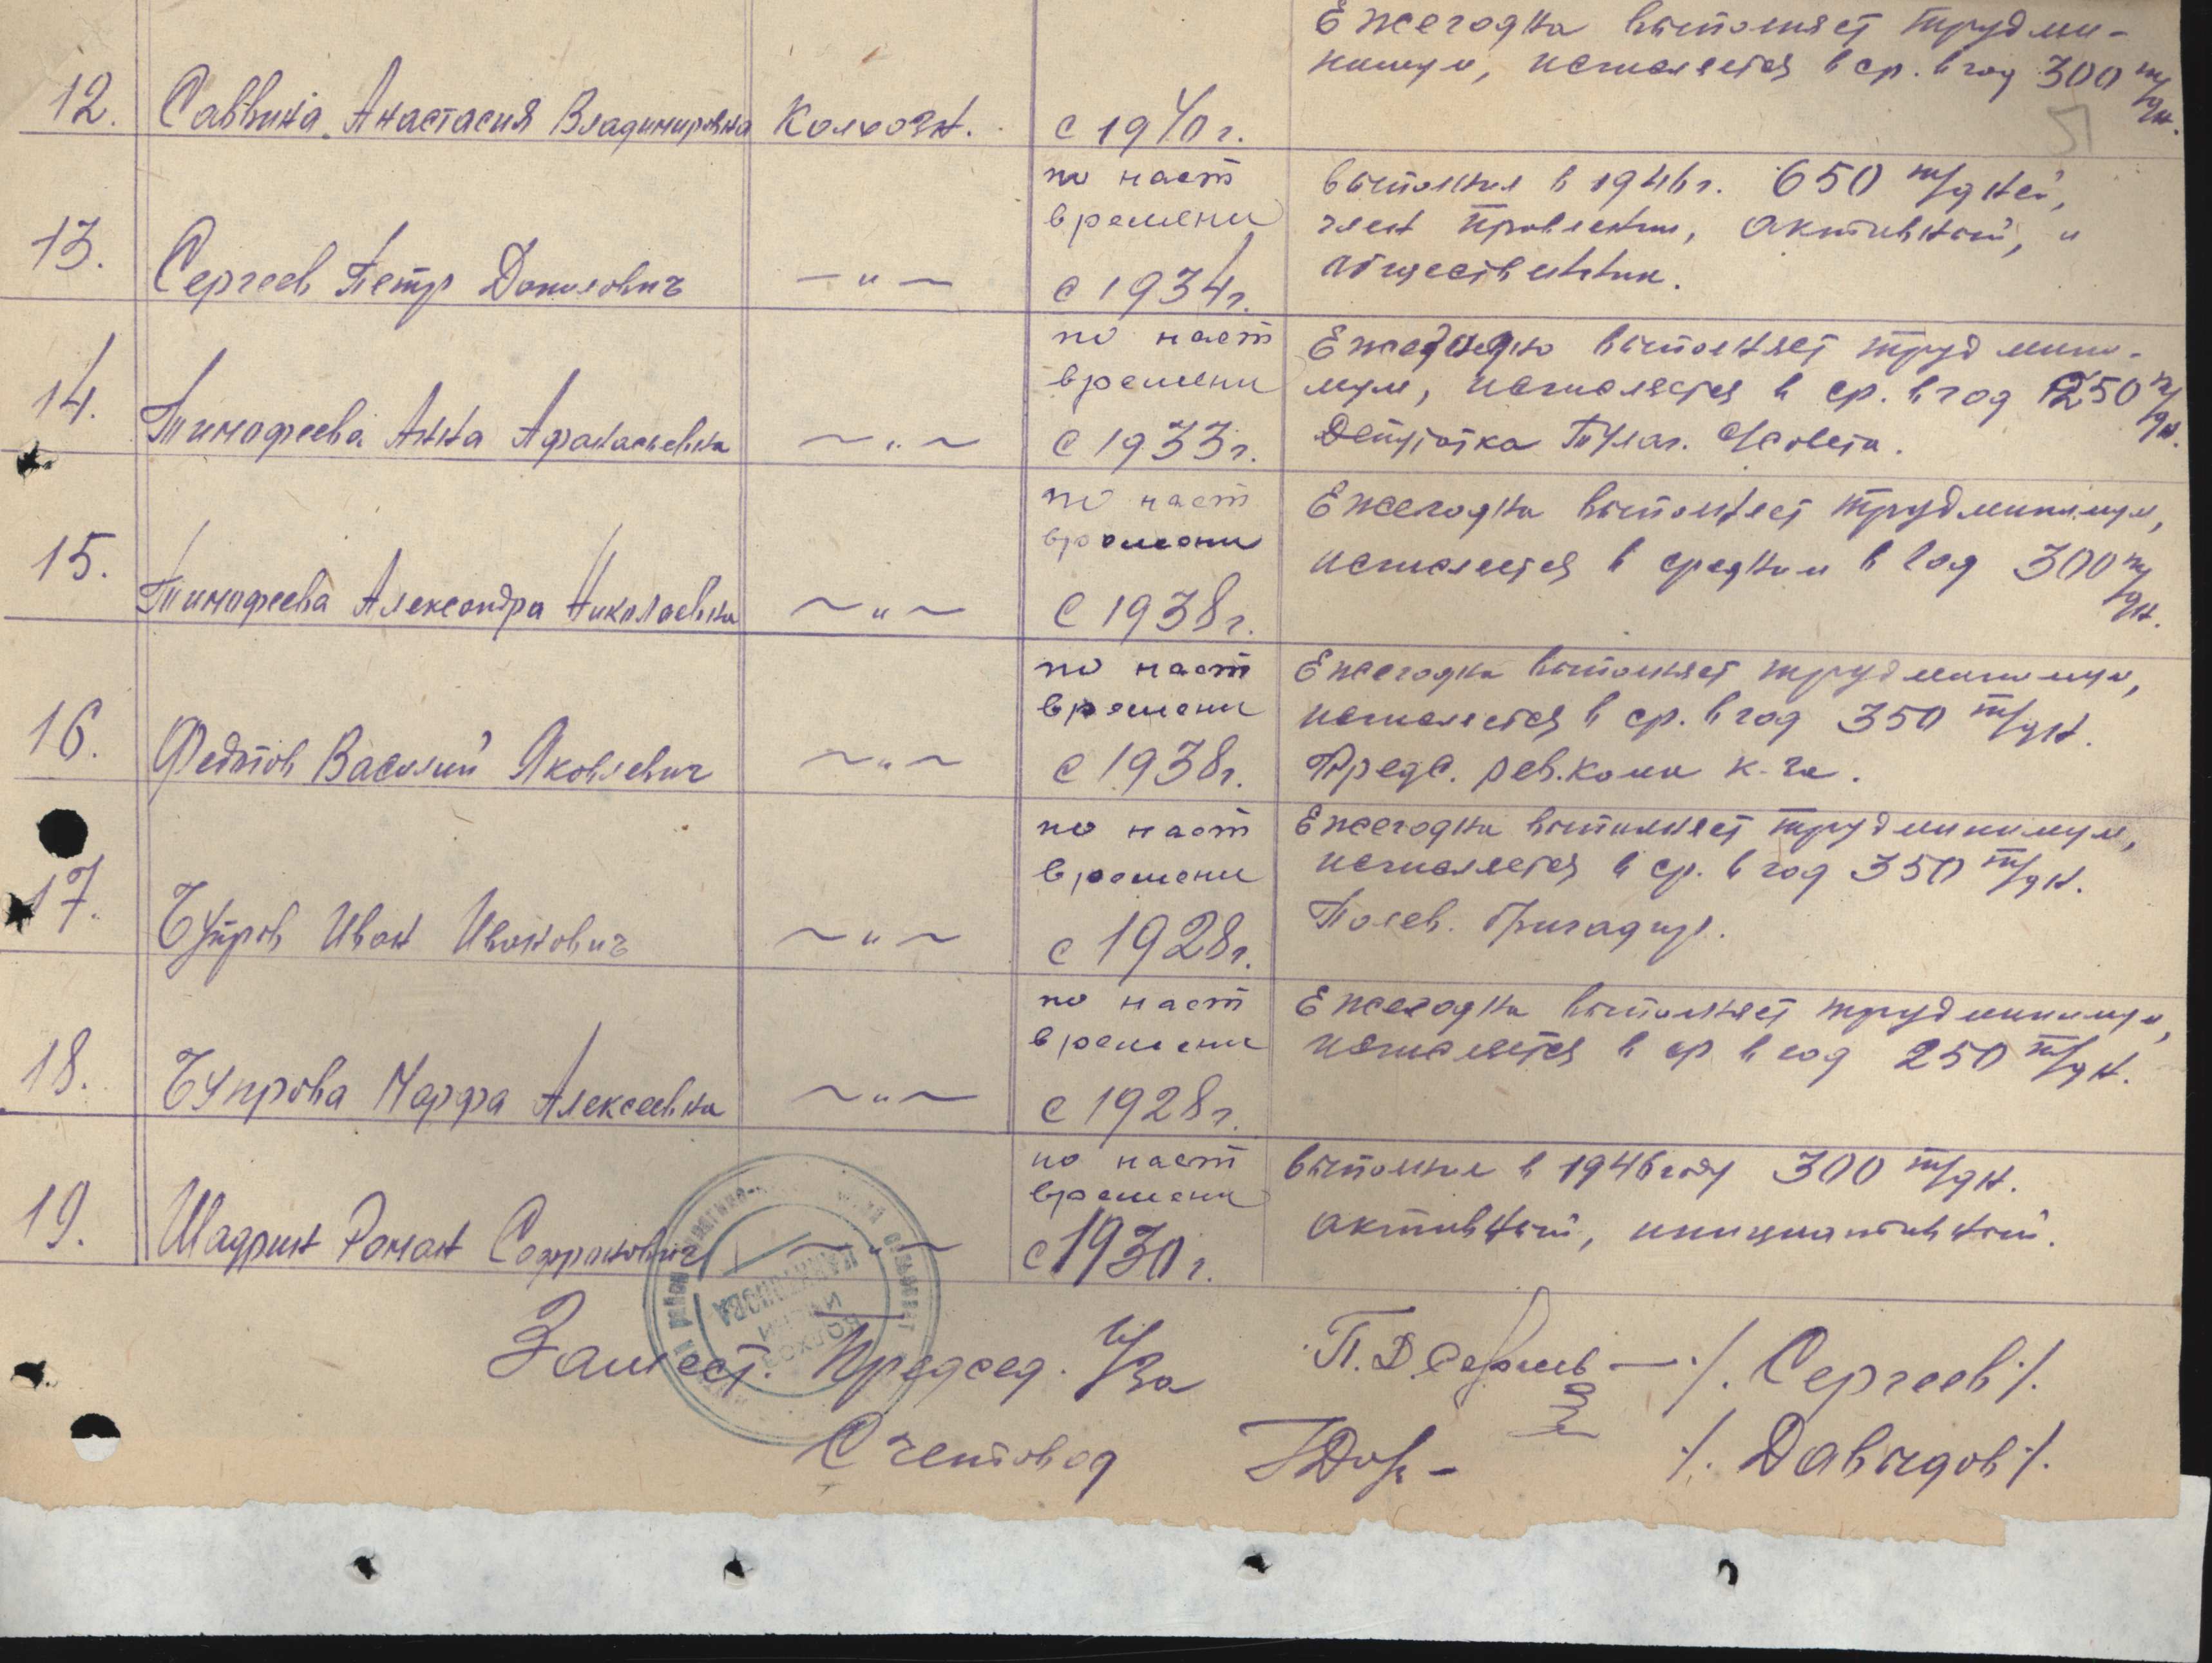 Ежегодно выполняет трудми-
нимум, исчисляется в ср. в год 300 т/дн.
12. Саввина Анастасия Владимировна Колхозн. с 1940 г.
по наст времени
выполнил в 1946 г. 650 т/дней,
член правления, активный, и
общественник.
13. Сергеев Петр Данилович —〃— с 1934 г.
по наст времени
Ежегодно выполняет труд мини-
мум, исчисляется в ср. в год 250 т/дн.
Депутатка Тулаг. с/совета.
14. Тимофеева Анна Афанасьевна —〃— с 1933 г.
по наст времени
Ежегодно выполняет трудминимум,
исчисляется в среднем в год 300 т/дн.
15. Тимофеева Александра Николаевна —〃— с 1938 г.
по наст времени
Ежегодно выполняет трудминимум,
исчисляется в ср. в год 350 т/дн.
Предс. рев.коми к-за.
16. Федотов Василий Яковлевич —〃— с 1938 г.
по наст времени
Ежегодно выполняет трудминимум,
исчисляется в ср. в год 350 т/дн.
Полев. бригадир.
17. Чупров Иван Иванович —〃— с 1928 г.
по наст времени
Ежегодно выполняет трудминимум,
исчисляется в ср в год 250 т/дн.
18. Чупрова Марфа Алексеевна —〃— с 1928 г.
по наст времени
выполнил в 1946 году 300 т/дн.
активный, инициативный.
19. Шадрин Роман Софронович —〃— с 1930 г.
Замест. Председ. к/за П. Д Сергеев — /. Сергеев /.
Счетовод /. Давыдов /.
КОЛХОЗ
ИМЕНИ